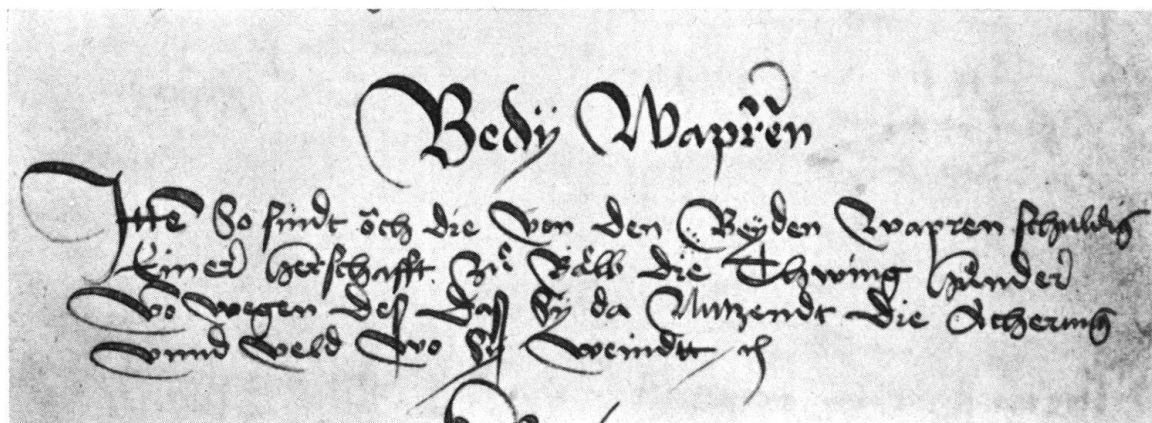 Bedÿ Wapren
Itte So sindt och die von den Beÿden Wapren schuldig
Einer herschafft zů die Thwing hůnder
Vō wegen des das sÿ da Nutzendt die Acherung
vnnd veld wo sÿ